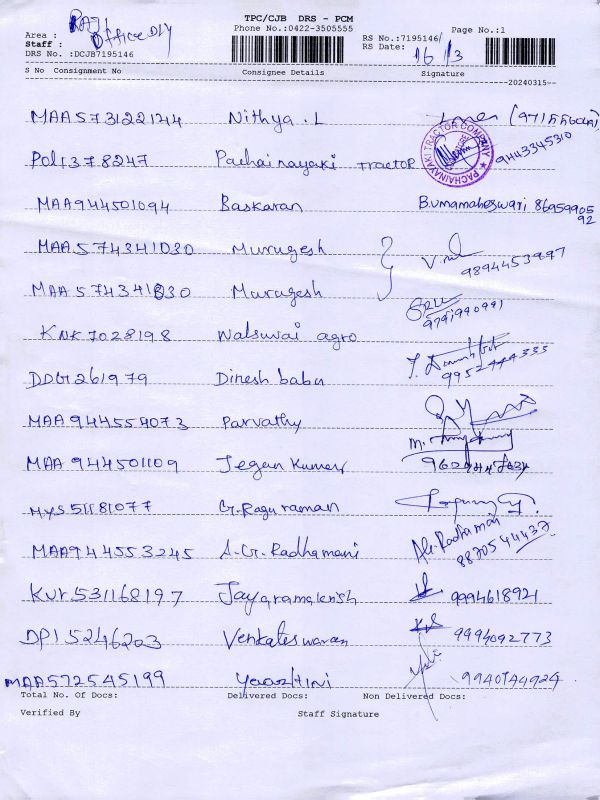 TPC/CJB DRS - PCM
Phone No.:0422-3505555
Page No.:1
RS No.:7195146/
RS Date: 16/3
Area : Raj
Staff : Office Dly
DRS No. :DCJB7195146
S No Consignment No Consignee Details Signature
20240315
MAA5731221244 Nithya . L
POL1378247 Pachainayaki Tractor 9443345310
PACHAINAYAKI TRACTOR COMPANY
MAA944501094 Baskaran B.Umamaheswari 8695990592
MAA574341030 Murugesh V.
MAA574341830 Murugesh 9791990991
KNK7028198 Walsuvai agro
DDG261979 Dinesh babu 9952444333
MAA944554073 Parvathy
MAA944501109 Jegan Kumar
MYS51181077 G.Raguraman
MAA944553245 A.G.Radhamani 8870544437
KUR531168197 Jayaramakrish 9994618921
DPI5246203 Venkateswaran 9994092773
MAA572545199 Yaazhini 9940744924
Total No. Of Docs: Delivered Docs: Non Delivered Docs:
Verified By Staff Signature